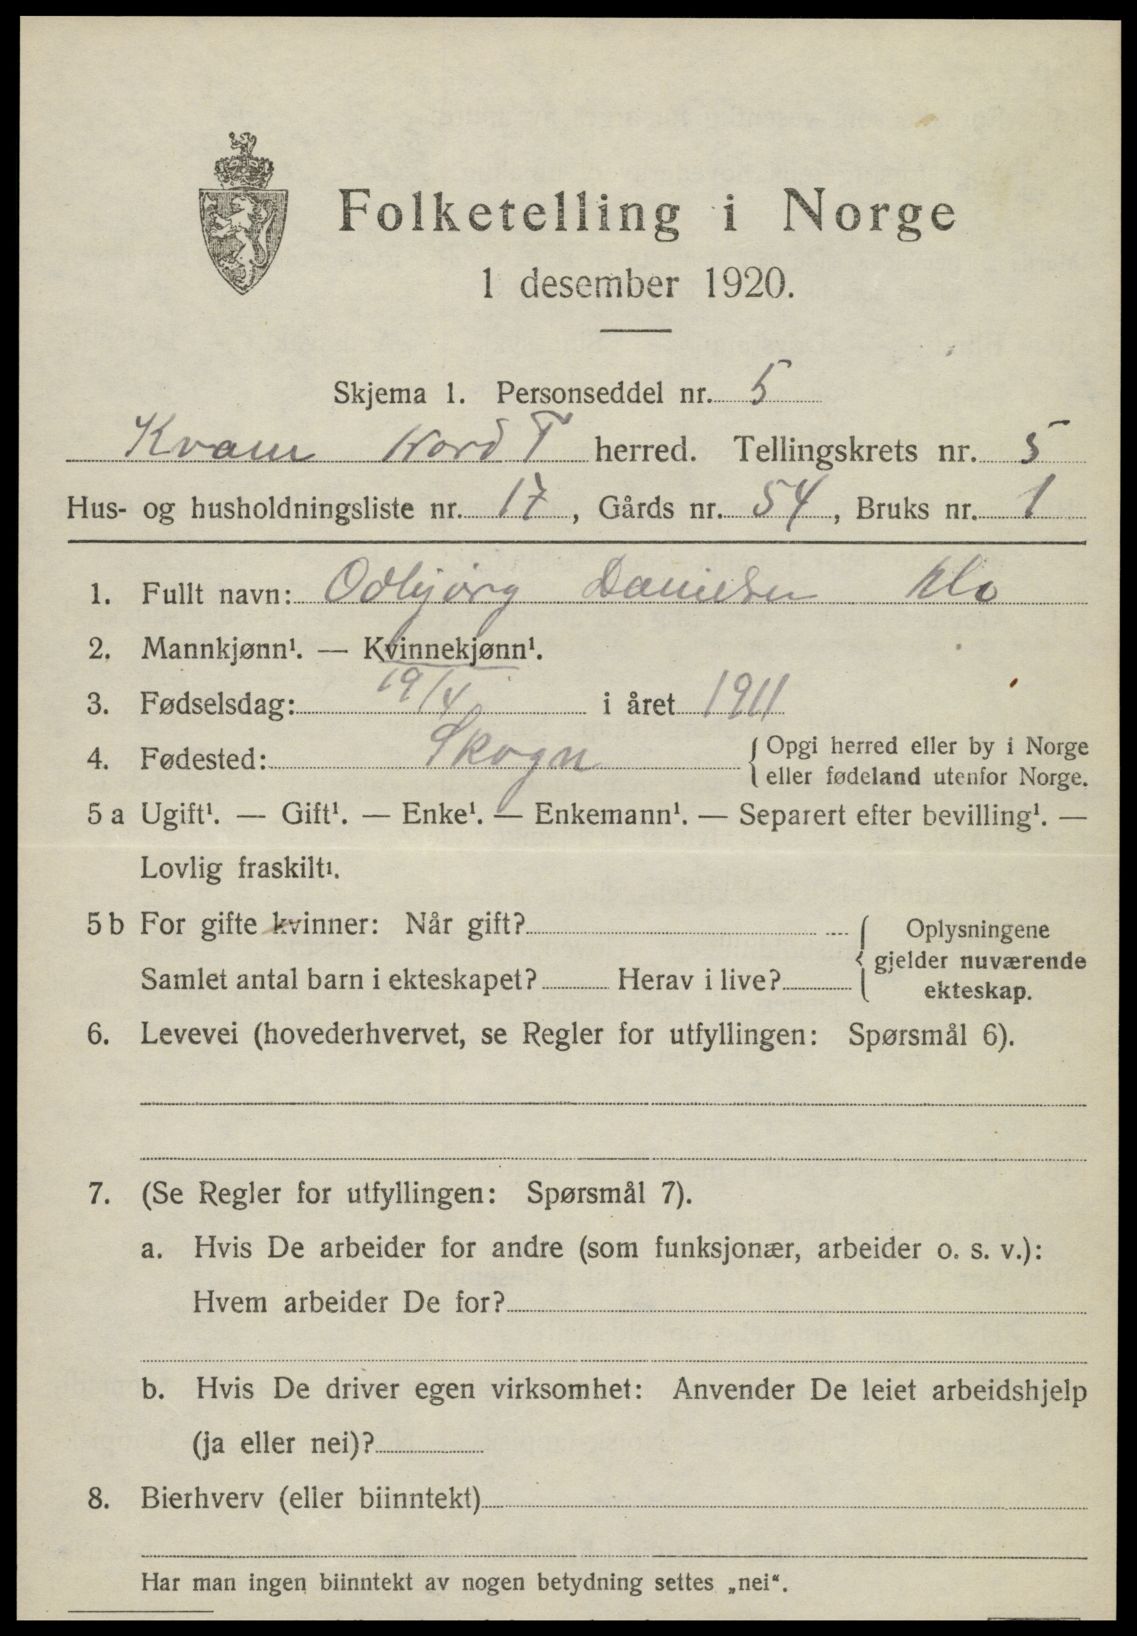 Folketelling i Norge
1 desember 1920.
Skjema 1. Personseddel nr. 5
Kvam Nord T herred. Tellingskrets nr. 5
Hus- og husholdningsliste nr. 17, Gårds nr. 54, Bruks nr. 1
1. Fullt navn: Odbjørg Danielsen Klo
2. Mannkjønn¹. — Kvinnekjønn¹.
3. Fødselsdag: 19/4 i året 1911
4. Fødested: Skogn { Opgi herred eller by i Norge
eller fødeland utenfor Norge.
5 a Ugift¹. — Gift¹. — Enke¹. — Enkemann¹. — Separert efter bevilling¹. —
Lovlig fraskilt¹.
5 b For gifte kvinner: Når gift? { Oplysningene
gjelder nuværende
Samlet antal barn i ekteskapet? Herav i live? ekteskap.
6. Levevei (hovederhvervet, se Regler for utfyllingen: Spørsmål 6).
7. (Se Regler for utfyllingen: Spørsmål 7).
a. Hvis De arbeider for andre (som funksjonær, arbeider o. s. v.):
Hvem arbeider De for?
b. Hvis De driver egen virksomhet: Anvender De leiet arbeidshjelp
(ja eller nei)?
8. Bierhverv (eller biinntekt)
Har man ingen biinntekt av nogen betydning settes „nei“.